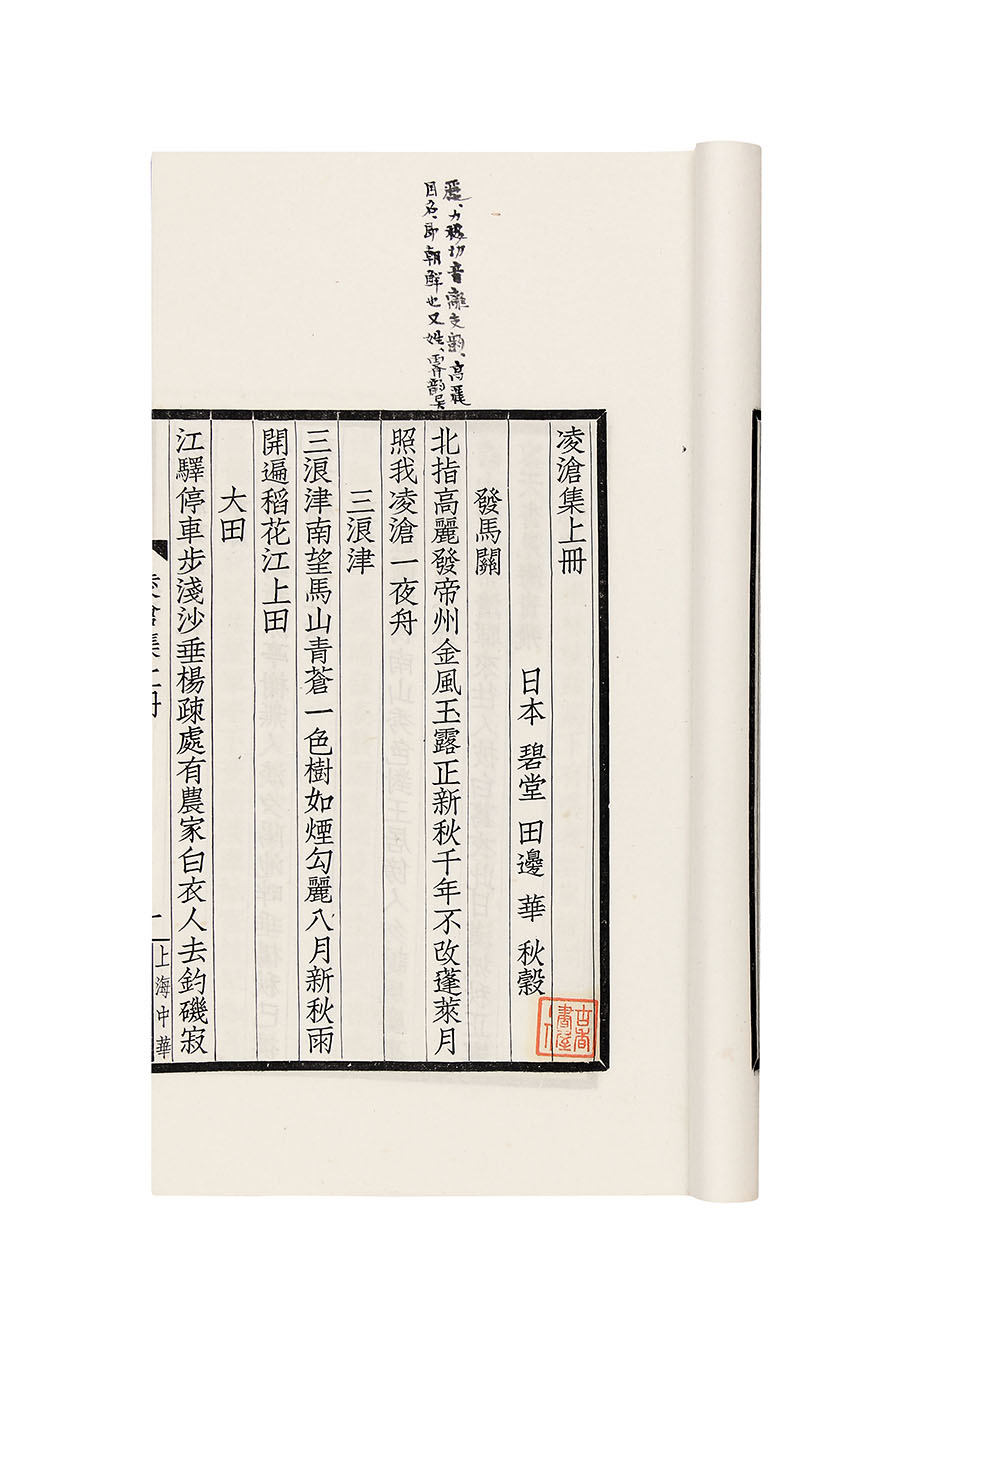 麗、力移切音離支韻、高麗
国名、即朝鮮也又姓、霽韻
凌滄集上冊
日本 碧堂 田邊 華 秋穀
發馬關
北指高麗發帝州金風玉露正新秋千年不改蓬萊月
照我凌滄一夜舟
三浪津
三浪津南望馬山青蒼一色樹如煙勾麗八月新秋雨
開遍稻花江上田
大田
江驛停車步淺沙垂楊疎處有農家白衣人去釣磯寂
凌滄集上冊
一
上海中華